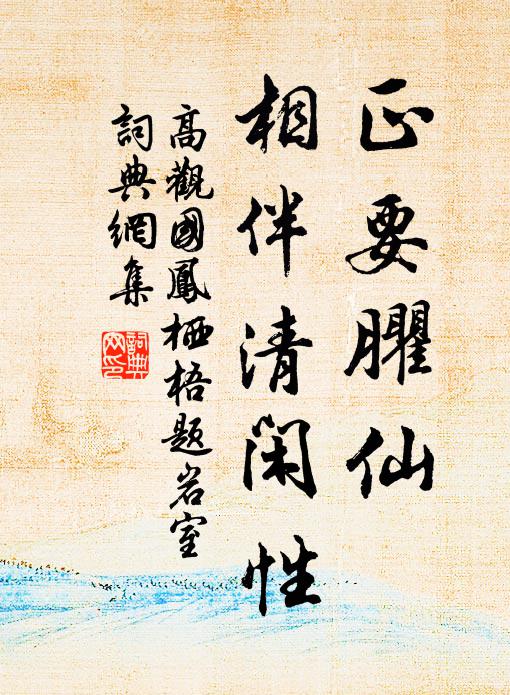 正要臞仙
相伴清閑性
高觀國鳳栖梧題岩室
詞典網集
詞典網印